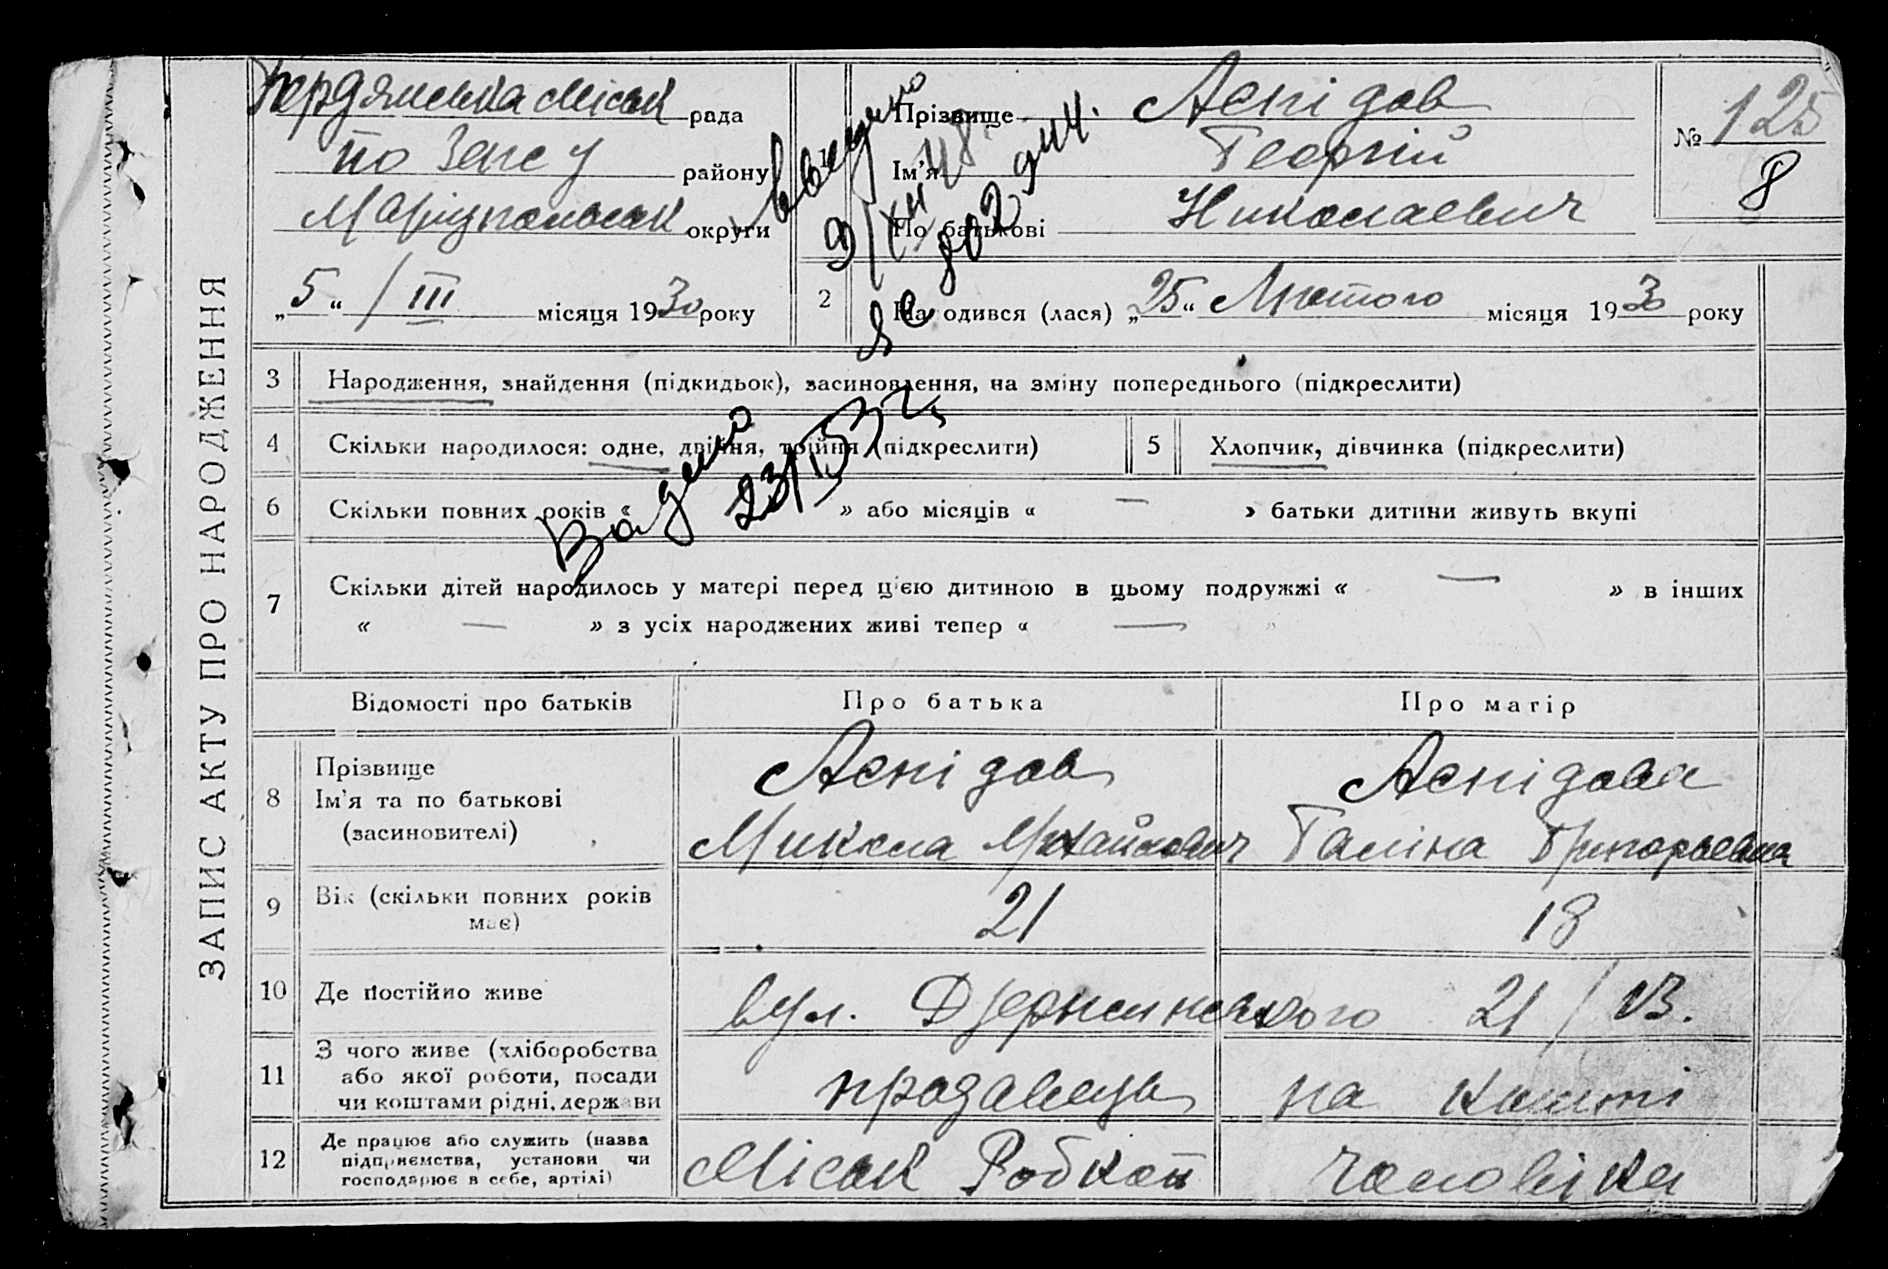 ЗАПИС АКТУ ПРО НАРОДЖЕННЯ
Бердянська Міськ рада
по Загсу району
Маріупольськ округи
„5“ / III місяця 1930 року
Прізвище Аспідов
Ім'я Георгій
По батькові Николаевич
№ 125
8
2 Народився (лася) „25“ Лютого місяця 1930 року
3 Народження, знайдення (підкидьок), засиновлення, на зміну попереднього (підкреслити)
4 Скільки народилося: одне, двійня, трійня (підкреслити)
5 Хлопчик, дівчинка (підкреслити)
6 Скільки повних років « » або місяців « — » батьки дитини живуть вкупі
7 Скільки дітей народилось у матері перед цією дитиною в цьому подружжі « — » в інших
« — » з усіх народжених живі тепер « — »
Видано
23/IV 53 г.
Відомості про батьків Про батька Про матір
8 Прізвище
Ім'я та по батькові
(засиновителі)
Аспідов
Микола Михайлович
Аспідова
Галіна Григорьевна
9 Вік (скільки повних років
має)
21
18
10 Де постійно живе
вул. Дзержинського 21/
11 З чого живе (хліборобства
або якої роботи, посади
чи коштами рідні, держави
продавець
на кошті
12 Де працює або служить (назва
підприємства, установи чи
господарює в себе, артілі)
Міськ Робкоп
чоловіка